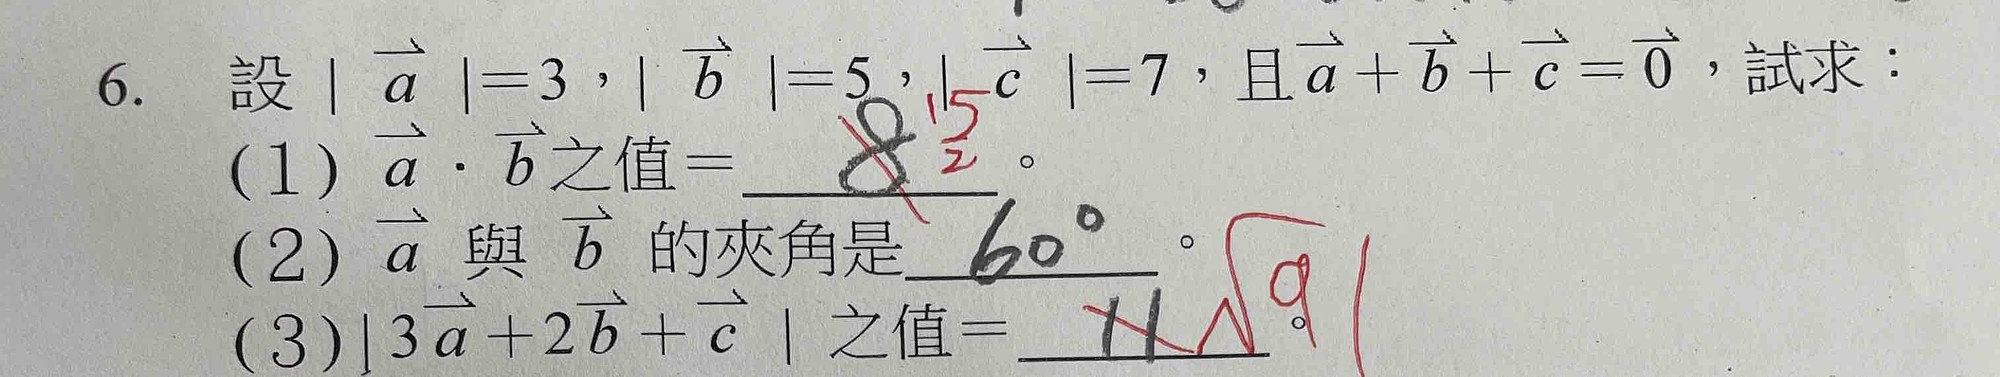 6. 設 | a⃗ |=3，| b⃗ |=5，| c⃗ |=7，且a⃗+b⃗+c⃗=0⃗，試求：
(1) a⃗ · b⃗之值= 8 15/2 。
(2) a⃗ 與 b⃗ 的夾角是 60° 。
(3)|3a⃗+2b⃗+c⃗ | 之值= 11 √91 。